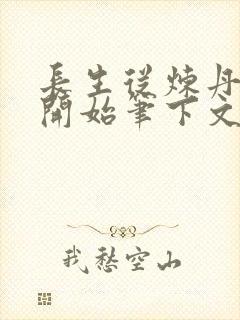 長生從煉丹
開始筆下文
我愁空山